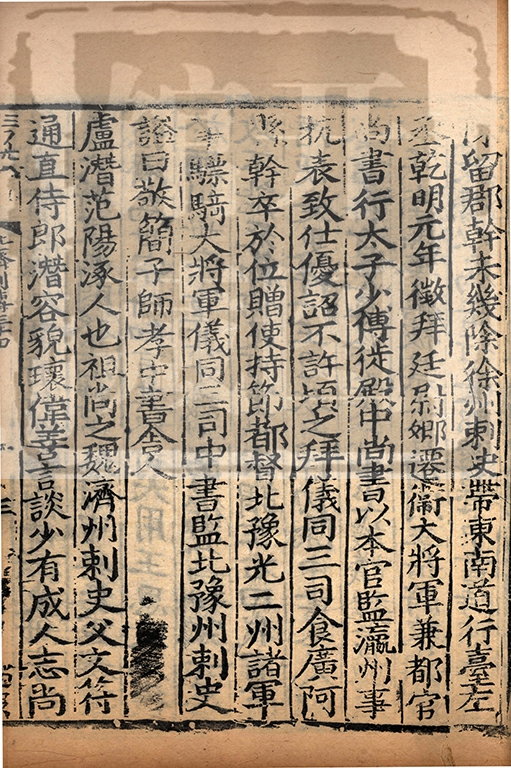 留郡幹未幾除徐州刺史帶東南道行臺左
丞乾明元年徵拜廷尉卿遷衞大將軍兼都官
尚書行太子少傅徙殿中尚書以本官監瀛州事
抗表致仕優詔不許頃之拜儀同三司食廣阿
縣幹卒於位贈使持節都督北豫光二州諸軍
事驃騎大將軍儀同三司中書監北豫州刺史
謚曰敬簡子師孝中書舍人
盧潛范陽涿人也祖尚之魏濟州刺史父文符
通直侍郎潛容貌瓌偉善言談少有成人志尚